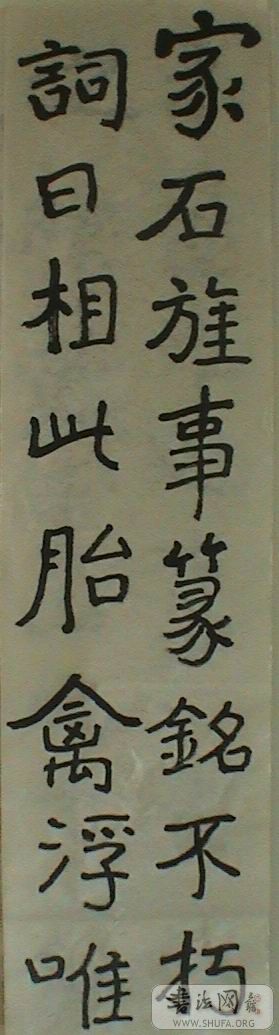 家石旌事篆銘不朽
詞曰相此胎禽浮唯
書法网
WWW.SHUFA.ORG